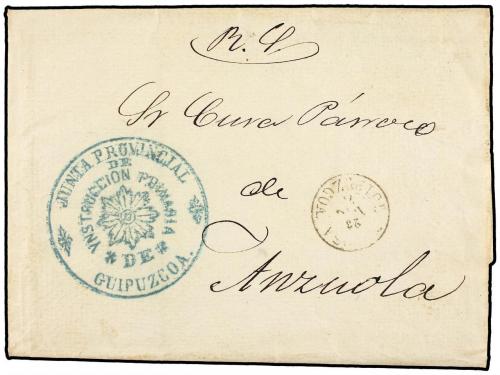 R. S
Sr Cura Párroco
de
Anzuola
JUNTA PROVINCIAL
DE
YNSTRUCCION PRIMARIA
DE
GUIPUZCOA.
23